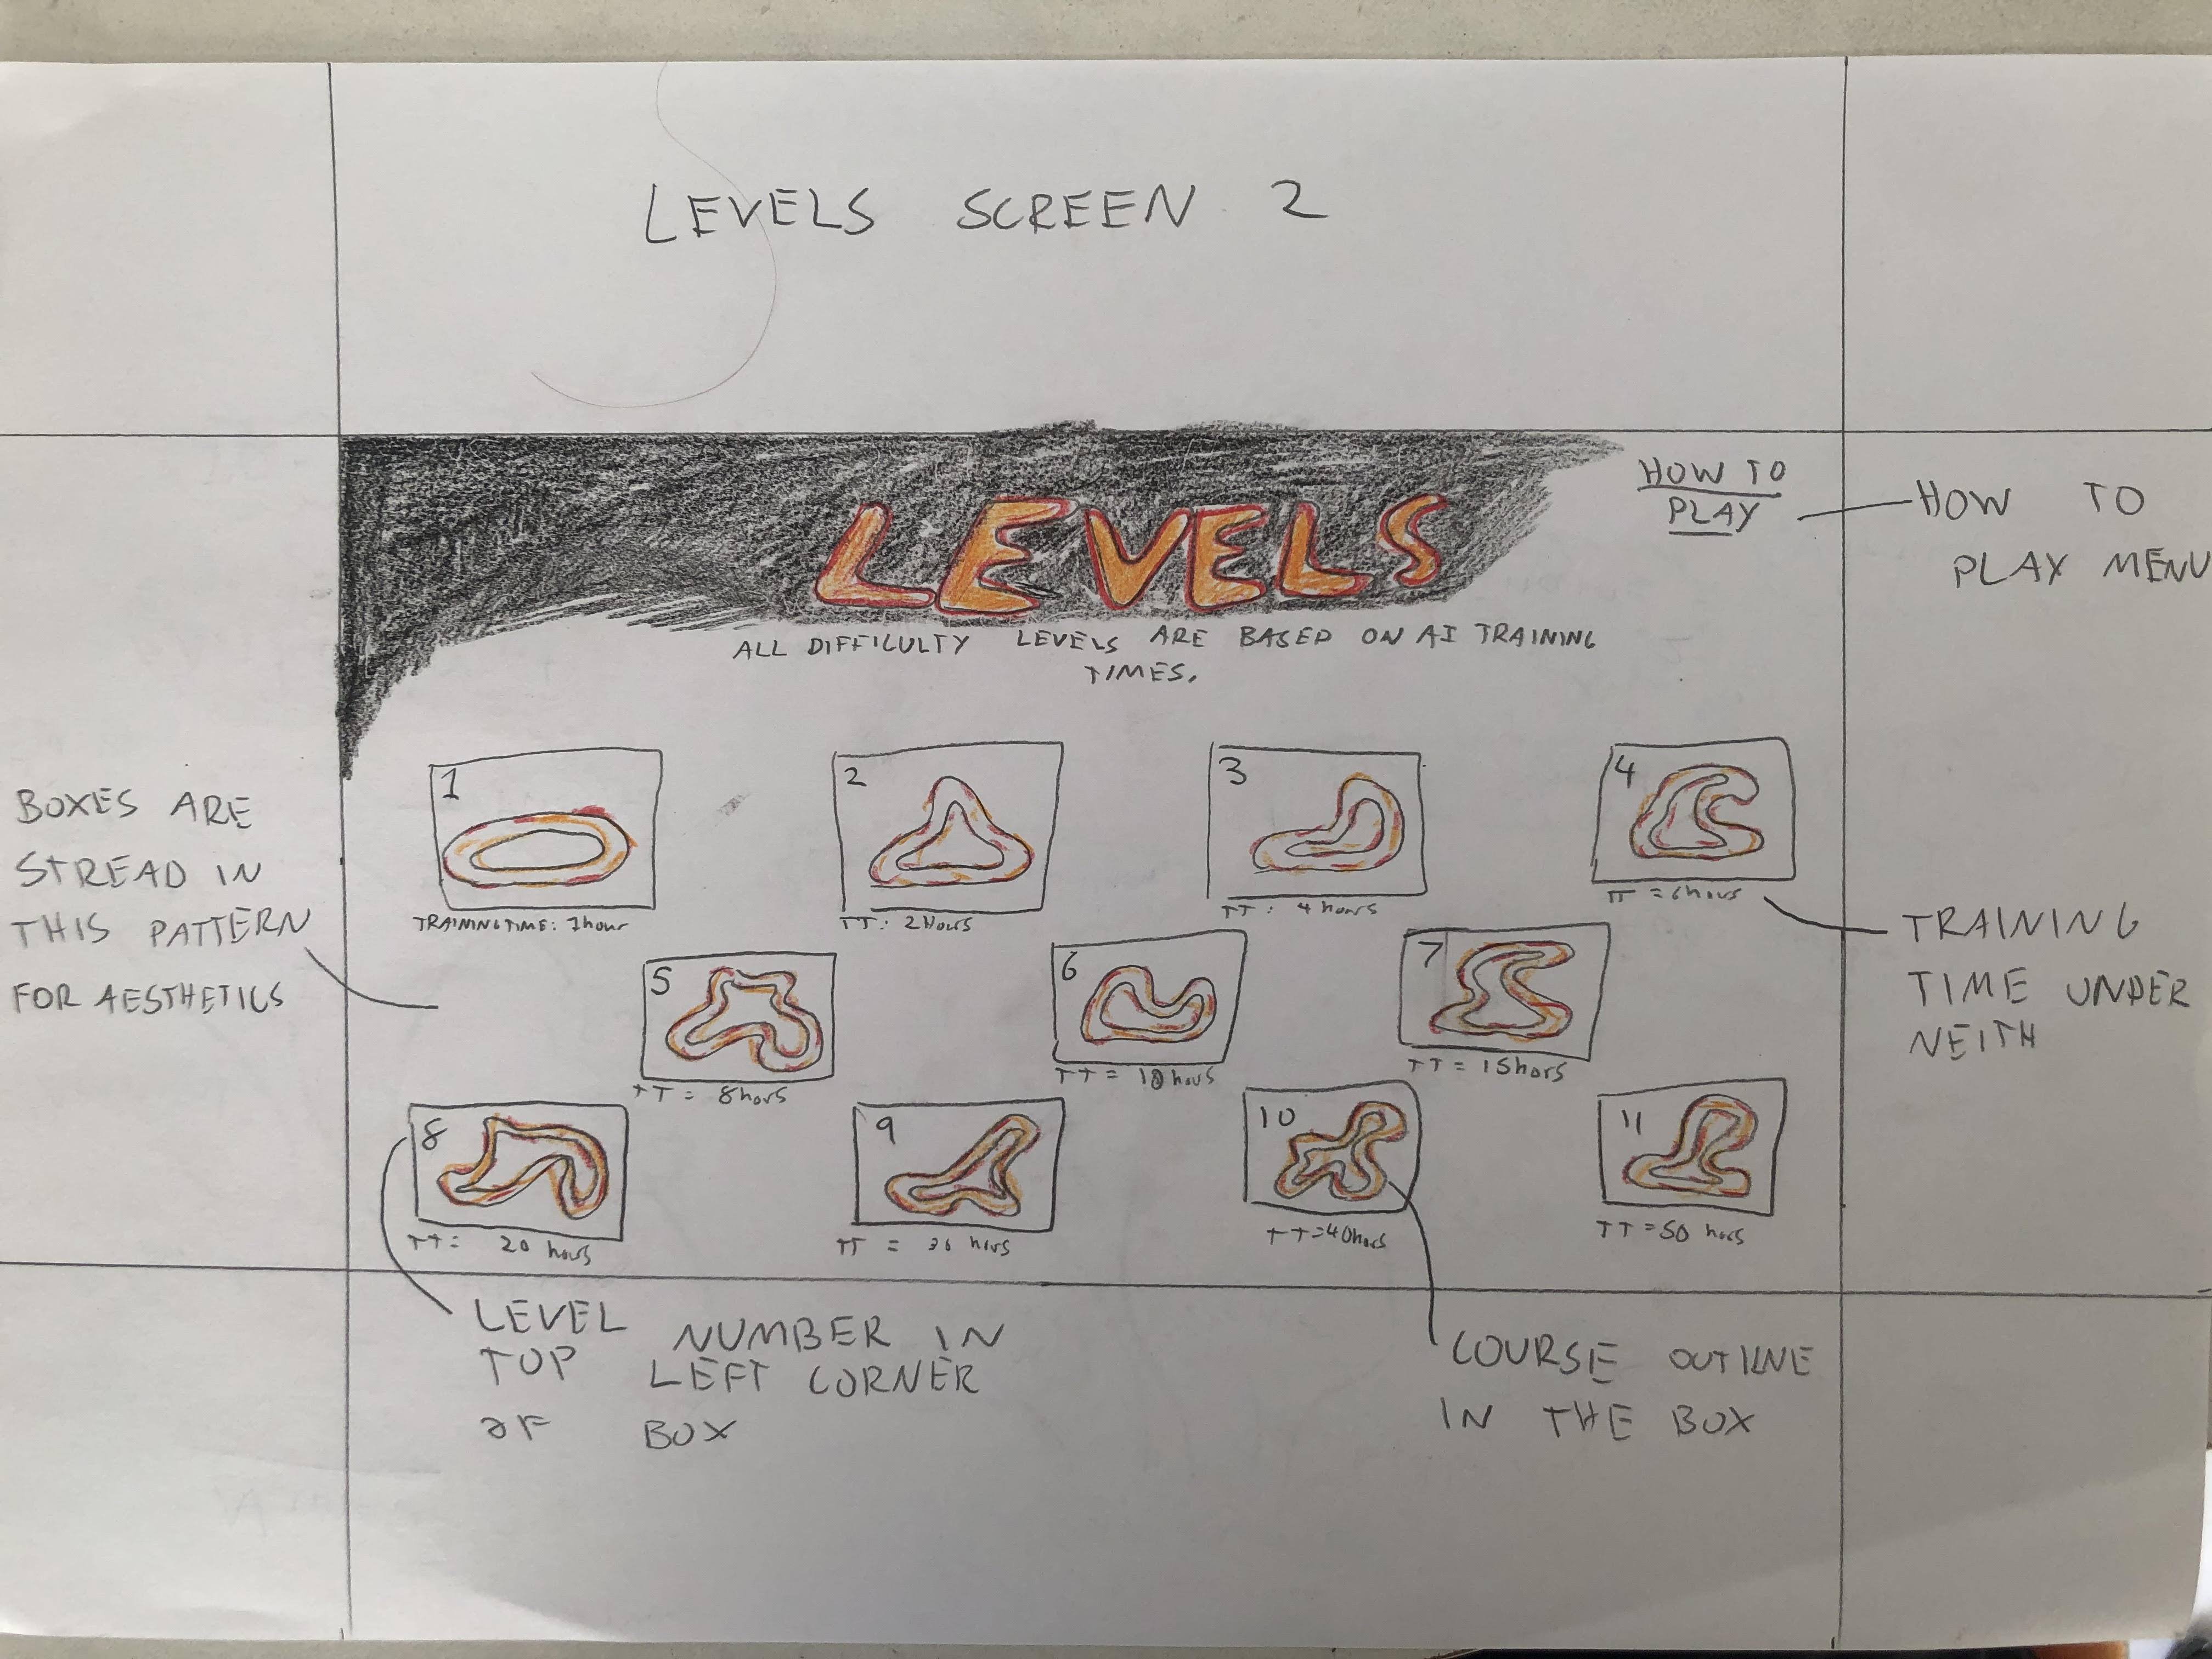 LEVELS SCREEN 2
HOW TO
PLAY
HOW TO
PLAY MENU
LEVELS
ALL DIFFICULTY LEVELS ARE BASED ON AI TRAINING
TIMES.
BOXES ARE
STREAD IN
THIS PATTERN
FOR AESTHETICS
1
TRAINING TIME: 1hour
2
TT: 2Hours
3
TT: 4hours
4
TT = 6hours
TRAINING
TIME UNDER
NEITH
5
TT = 8hors
6
TT = 10hours
7
TT = 15hors
8
TT= 20 hours
9
TT = 30 hors
10
TT=40hors
11
TT=50 hors
LEVEL NUMBER IN
TOP LEFT CORNER
OF BOX
COURSE OUTLINE
IN THE BOX